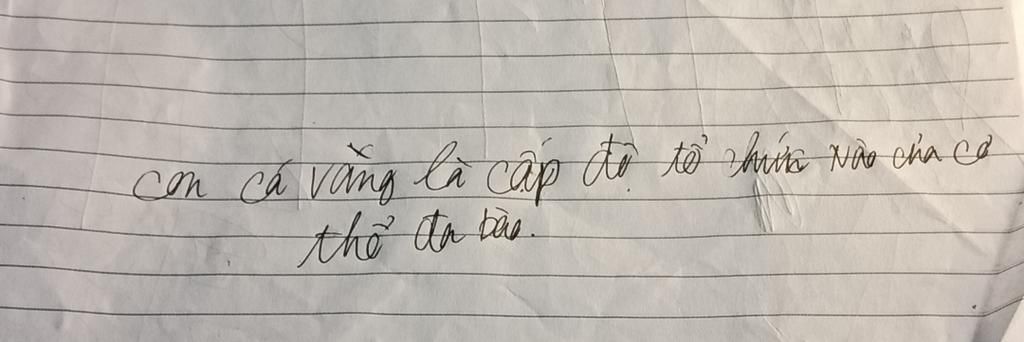 con cá vằng là cấp độ tổ chức nào của cơ
thể đa bào.